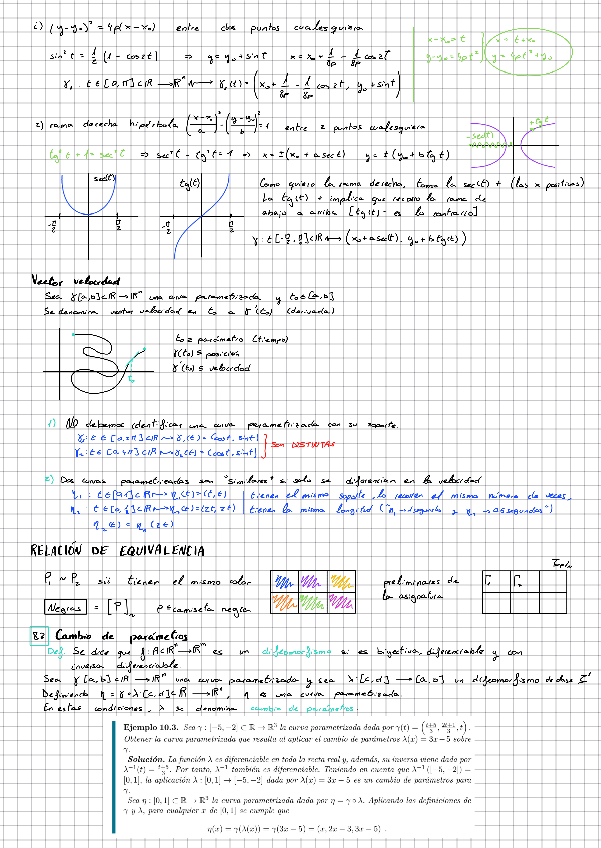 1) (y-y₀)² = 4p(x-x₀) entre dos puntos cualesquiera
x-x₀=t
x=t+x₀
y-y₀=4pt²
y=4pt²+y₀
sin²t = 1/2 (1-cos2t) ⇒ y=y₀+sint x=x₀+1/8p - 1/8p cos2t
γ₁: t∈[0,π]⊂ℝ→ℝⁿ ⟼ γ₁(t)=(x₀+1/8p - 1/8p cos2t, y₀+sint)
2) rama derecha hipérbola ((x-x₀)/a)² - ((y-y₀)/b)² = 1 entre 2 puntos cualesquiera
-sec(t)
+tgt
tg²t+1=sec²t ⇒ sec²t - tg²t=1 ⇒ x=±(x₀+a sec t) y=±(y₀+b tg t)
sec(t)
tg(t)
-π/2 π/2 -π/2 π/2
Como quiero la rama derecha, tomo la sec(t) + (las x positivas)
La tg(t) + implica que recorro la rama de
abajo a arriba [tg(t) - es lo contrario]
γ: t[-π/2, π/2]⊂ℝ ⟼ (x₀+a sec(t), y₀+b tg(t))
Vector velocidad
Sea γ[a,b]⊂ℝ→ℝⁿ una curva parametrizada y t₀∈[a,b]
Se denomina vector velocidad en t₀ a γ'(t₀) (derivada)
t₀ ≡ parámetro (tiempo)
γ(t₀) ≡ posición
γ'(t₀) ≡ velocidad
t₀
1) NO debemos identificar una curva parametrizada con su soporte.
γ₁: t∈[0,2π]⊂ℝ⟼γ₁(t)=(cost, sint)
γ₂: t∈[0,4π]⊂ℝ⟼γ₂(t)=(cost, sint)
SON DISTINTAS
2) Dos curvas parametrizadas son "similares" si solo se diferencian en la velocidad
η₁: t∈[0,1]⊂ℝ⟼η₁(t)=(t,t) | tienen el mismo soporte, lo recorren el mismo número de veces,
η₂ t∈[0,½]⊂ℝ⟼η₂(t)=(2t,2t) | tienen la misma longitud ("η₁→1segundo y η₂→0.5segundos")
η₂(t)=η₁(2t)
RELACIÓN DE EQUIVALENCIA
P₁ ~ P₂ sii tienen el mismo color
preliminares de
la asignatura
Γ₁ Γ₂
Negras = [P]~ p∈camiseta negra
8.7 Cambio de parámetros
Def. Se dice que f: A⊂ℝⁿ→ℝᵐ es un difeomorfismo si es biyectiva, diferenciable y con
inversa diferenciable
Sea γ[a,b]⊂ℝ→ℝⁿ una curva parametrizada y sea λ:[c,d]→[a,b] un difeomorfismo de clase C¹
Definiendo η=γ∘λ:[c,d]⊂ℝ→ℝⁿ, η es una curva parametrizada
En estas condiciones, λ se denomina cambio de parámetros.
Ejemplo 10.3. Sea γ : [−5,−2] ⊂ ℝ → ℝ³ la curva parametrizada dada por γ(t) = ((t+5)/3, (2t+1)/3, t).
Obtener la curva parametrizada que resulta al aplicar el cambio de parámetros λ(x) = 3x − 5 sobre
γ.
Solución. La función λ es diferenciable en toda la recta real y, además, su inversa viene dada por
λ⁻¹(t) = (t+5)/3. Por tanto, λ⁻¹ también es diferenciable. Teniendo en cuenta que λ⁻¹([−5,−2]) =
[0,1], la aplicación λ : [0,1] → [−5,−2] dada por λ(x) = 3x − 5 es un cambio de parámetros para
γ.
Sea η : [0,1] ⊂ ℝ → ℝ³ la curva parametrizada dada por η = γ ∘ λ. Aplicando las definiciones de
γ y λ, para cualquier x de [0,1] se cumple que
η(x) = γ(λ(x)) = γ(3x − 5) = (x, 2x − 3, 3x − 5) .